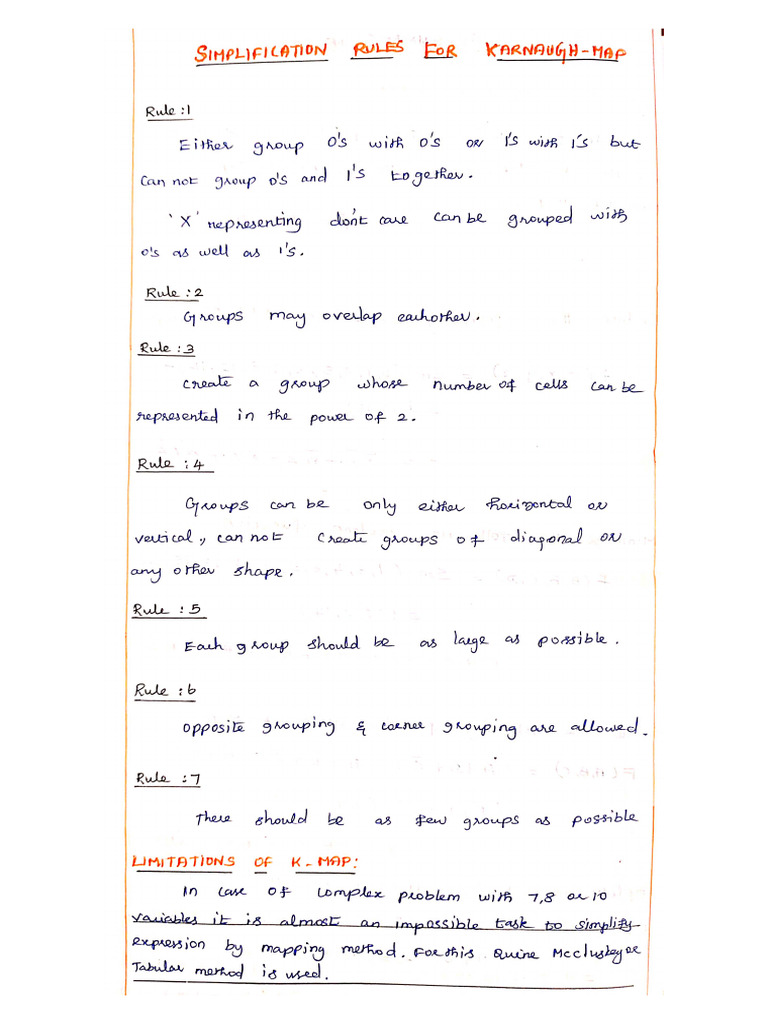 SIMPLIFICATION RULES FOR KARNAUGH-MAP
Rule:1
Either group 0's with 0's or 1's with 1's but
Can not group 0's and 1's together.
'X' representing don't care can be grouped with
0's as well as 1's.
Rule:2
Groups may overlap eachother.
Rule:3
create a group whose number of cells can be
represented in the power of 2.
Rule:4
Groups can be only either horizontal or
vertical, can not create groups of diagonal or
any other shape.
Rule:5
Each group should be as large as possible.
Rule:6
opposite grouping & corner grouping are allowed.
Rule:7
There should be as few groups as possible
LIMITATIONS OF K-MAP:
In case of complex problem with 7,8 or 10
variables it is almost an impossible task to simplify
expression by mapping method. For this Quine Mccluskey or
Tabular method is used.